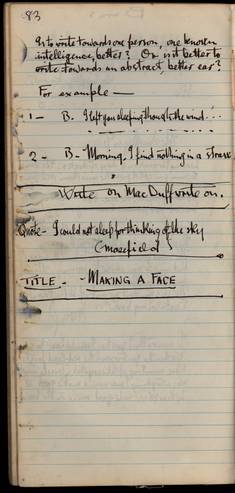 83
Is to write towards one person, one known
intelligence, better? Or is it better to
write towards an abstract, better ear?
For example —
1 - B. I left you sleeping though the wind...
2 - B - Morning. I find nothing in a straw
Write on MacDuff write on.
Quote - I could not sleep for thinking of the sky
(Masefield)
TITLE. - - MAKING A FACE